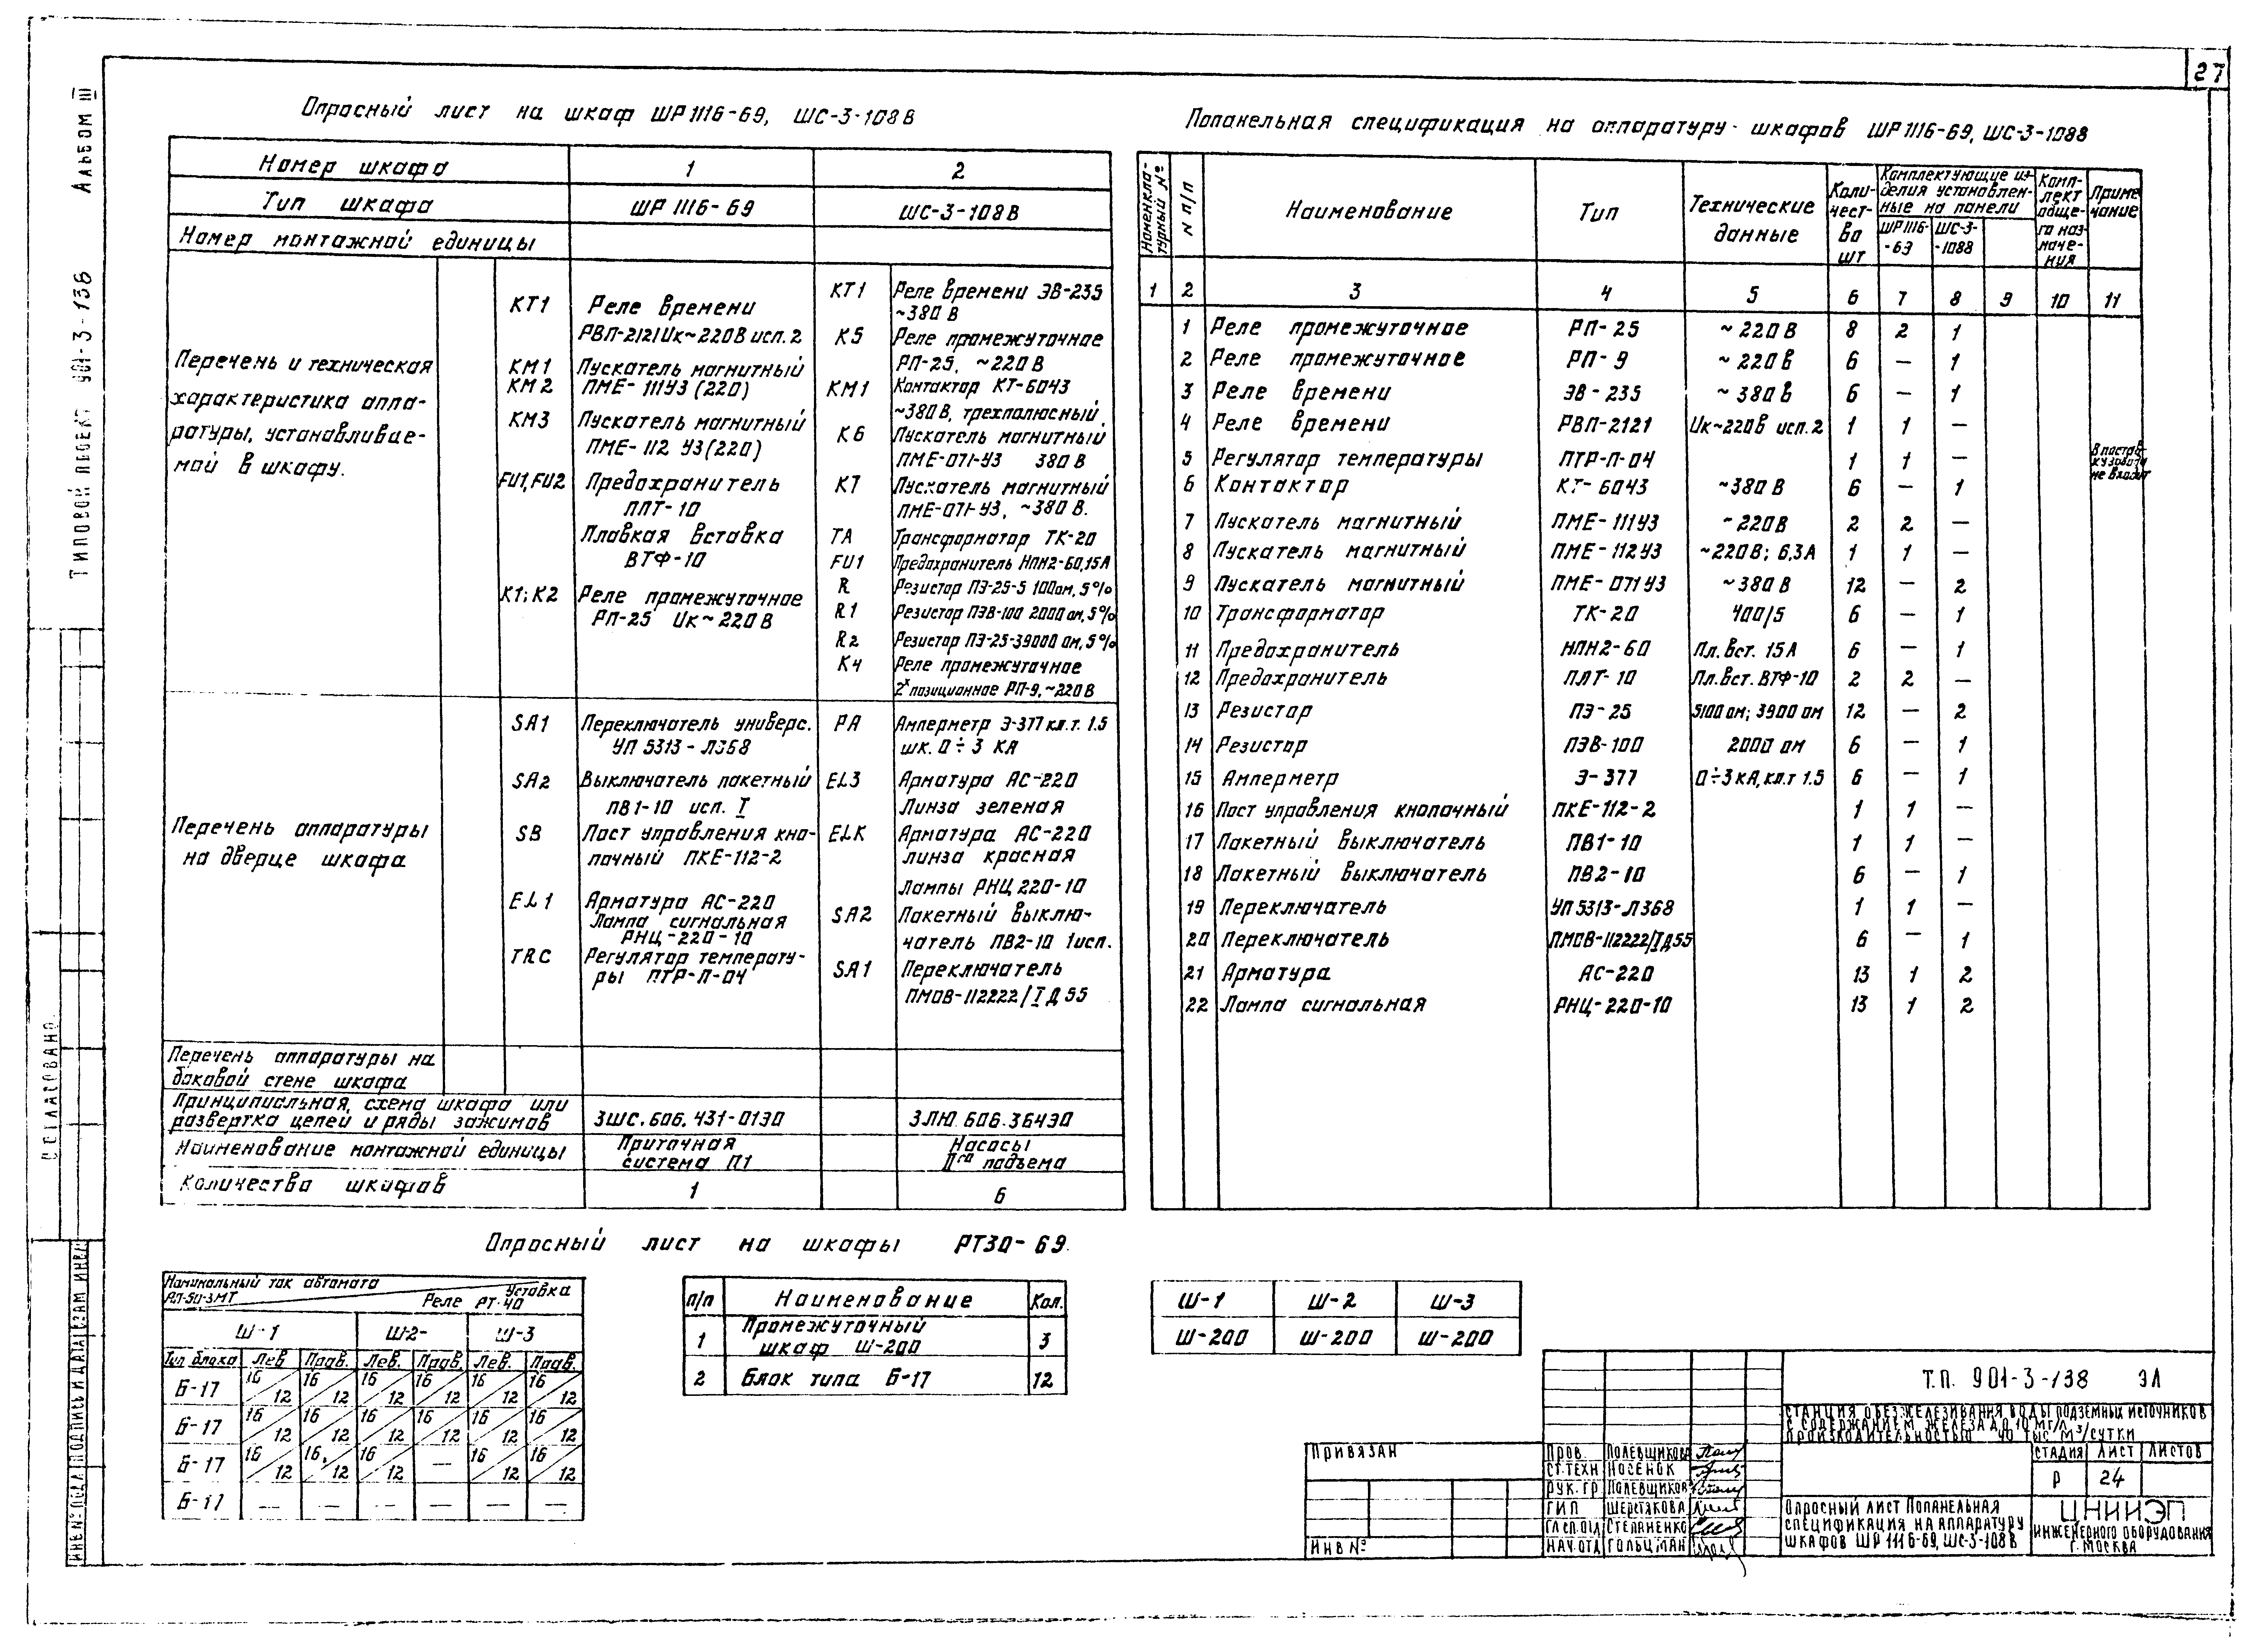 27
Альбом III
Типовой проект 901-3-138
Согласовано:
Опросный лист на шкаф ШР 1116-69, ШС-3-108В
Номер шкафа 1 2
Тип шкафа ШР 1116-69 ШС-3-108В
Номер монтажной единицы
Перечень и техническая
характеристика аппа-
ратуры, устанавливае-
мой в шкафу.
КТ1 Реле времени
РВП-2121 Uк~220В исп. 2
КМ1 Пускатель магнитный
КМ2 ПМЕ-111У3 (220)
КМ3 Пускатель магнитный
ПМЕ-112 У3 (220)
FU1, FU2 Предохранитель
ППТ-10
Плавкая вставка
ВТФ-10
К1; К2 Реле промежуточное
РП-25 Uк~220В
КТ1 Реле времени ЭВ-235
~380В
К5 Реле промежуточное
РП-25, ~220В
КМ1 Контактор КТ-6043
~380В, трехполюсный
К6 Пускатель магнитный
ПМЕ-071-У3 380В
К7 Пускатель магнитный
ПМЕ-071-У3, ~380В.
ТА Трансформатор ТК-20
FU1 Предохранитель НПН2-60, 15А
R Резистор ПЭ-25-5 100ом, 5%
R1 Резистор ПЭВ-100 2000 ом, 5%
R2 Резистор ПЭ-25-39000 ом, 5%
К4 Реле промежуточное
2х позиционное РП-9, ~220В
Перечень аппаратуры
на дверце шкафа
SA1 Переключатель универс.
УП 5313-Л368
SA2 Выключатель пакетный
ПВ1-10 исп. I
SB Пост управления кно-
почный ПКЕ-112-2
EL1 Арматура АС-220
Лампа сигнальная
РНЦ-220-10
TRC Регулятор температу-
ры ПТР-П-04
РА Амперметр Э-377 кл.т. 1.5
шк. 0÷3 КА
EL3 Арматура АС-220
Линза зеленая
ELK Арматура АС-220
линза красная
Лампы РНЦ 220-10
SA2 Пакетный выклю-
чатель ПВ2-10 1исп.
SA1 Переключатель
ПМОВ-112222/I Д55
Перечень аппаратуры на
боковой стене шкафа
Принципиальная схема шкафа или
развертка цепей и ряды зажимов 3ШС.606.431-01Э0 3ЛЮ.606.364Э0
Наименование монтажной единицы Приточная система П1 Насосы IIго подъема
Количества шкафов 1 6
Попанельная спецификация на аппаратуру шкафов ШР 1116-69, ШС-3-108В
Номенкла-
турный №
N п/п
Наименование
Тип
Технические
данные
Коли-
чест-
во
шт
Комплектующие из-
делия установлен-
ные на панели
ШР 1116-
-69
ШС-3-
-108В
Комп-
лект
обще-
го наз-
наче-
ния
Приме
чание
1 2 3 4 5 6 7 8 9 10 11
1 Реле промежуточное РП-25 ~220В 8 2 1
2 Реле промежуточное РП-9 ~220В 6 — 1
3 Реле времени ЭВ-235 ~380В 6 — 1
4 Реле времени РВП-2121 Uк~220В исп. 2 1 1 —
5 Регулятор температуры ПТР-П-04 1 1 —
не входит
6 Контактор КТ-6043 ~380В 6 — 1
7 Пускатель магнитный ПМЕ-111У3 ~220В 2 2 —
8 Пускатель магнитный ПМЕ-112У3 ~220В; 6,3А 1 1 —
9 Пускатель магнитный ПМЕ-071У3 ~380В 12 — 2
10 Трансформатор ТК-20 400/5 6 — 1
11 Предохранитель НПН2-60 Пл. вст. 15А 6 — 1
12 Предохранитель ППТ-10 Пл. вст. ВТФ-10 2 2 —
13 Резистор ПЭ-25 5100 ом; 3900 ом 12 — 2
14 Резистор ПЭВ-100 2000 ом 6 — 1
15 Амперметр Э-377 0÷3 КА, кл.т 1.5 6 — 1
16 Пост управления кнопочный ПКЕ-112-2 1 1 —
17 Пакетный выключатель ПВ1-10 1 1 —
18 Пакетный выключатель ПВ2-10 6 — 1
19 Переключатель УП 5313-Л368 1 1 —
20 Переключатель ПМОВ-112222/I Д55 6 — 1
21 Арматура АС-220 13 1 2
22 Лампа сигнальная РНЦ-220-10 13 1 2
Опросный лист на шкафы РТ30-69.
Номинальный ток автомата
АП-50-3МТ
Уставка
Реле РТ-40
Ш-1 Ш-2- Ш-3
Тип блока Лев Прав. Лев. Прав. Лев. Прав.
Б-17 16/12 16/12 16/12 16/12 16/12 16/12
Б-17 16/12 16/12 16/12 16/12 16/12 16/12
Б-17 16/12 16/12 16/12 — 16/12 16/12
Б-17 — — — — — —
п/п Наименование Кол.
1 Промежуточный шкаф Ш-200 3
2 Блок типа Б-17 12
Ш-1 Ш-2 Ш-3
Ш-200 Ш-200 Ш-200
Привязан
Инв №
Пров. Полевщикова
Ст. техн Носенок
Рук. гр Полевщиков
ГИП Шерстакова
Гл сп. отд Степаненко
Нач. отд Гольцман
Т.П. 901-3-138 ЭЛ
Станция обезжелезивания воды подземных источников
с содержанием железа до 10 мг/л
производительностью 40 тыс м³/сутки
Стадия Лист Листов
Р 24
Опросный лист Попанельная
спецификация на аппаратуру
шкафов ШР 1116-69, ШС-3-108В
ЦНИИЭП
инженерного оборудования
г. Москва